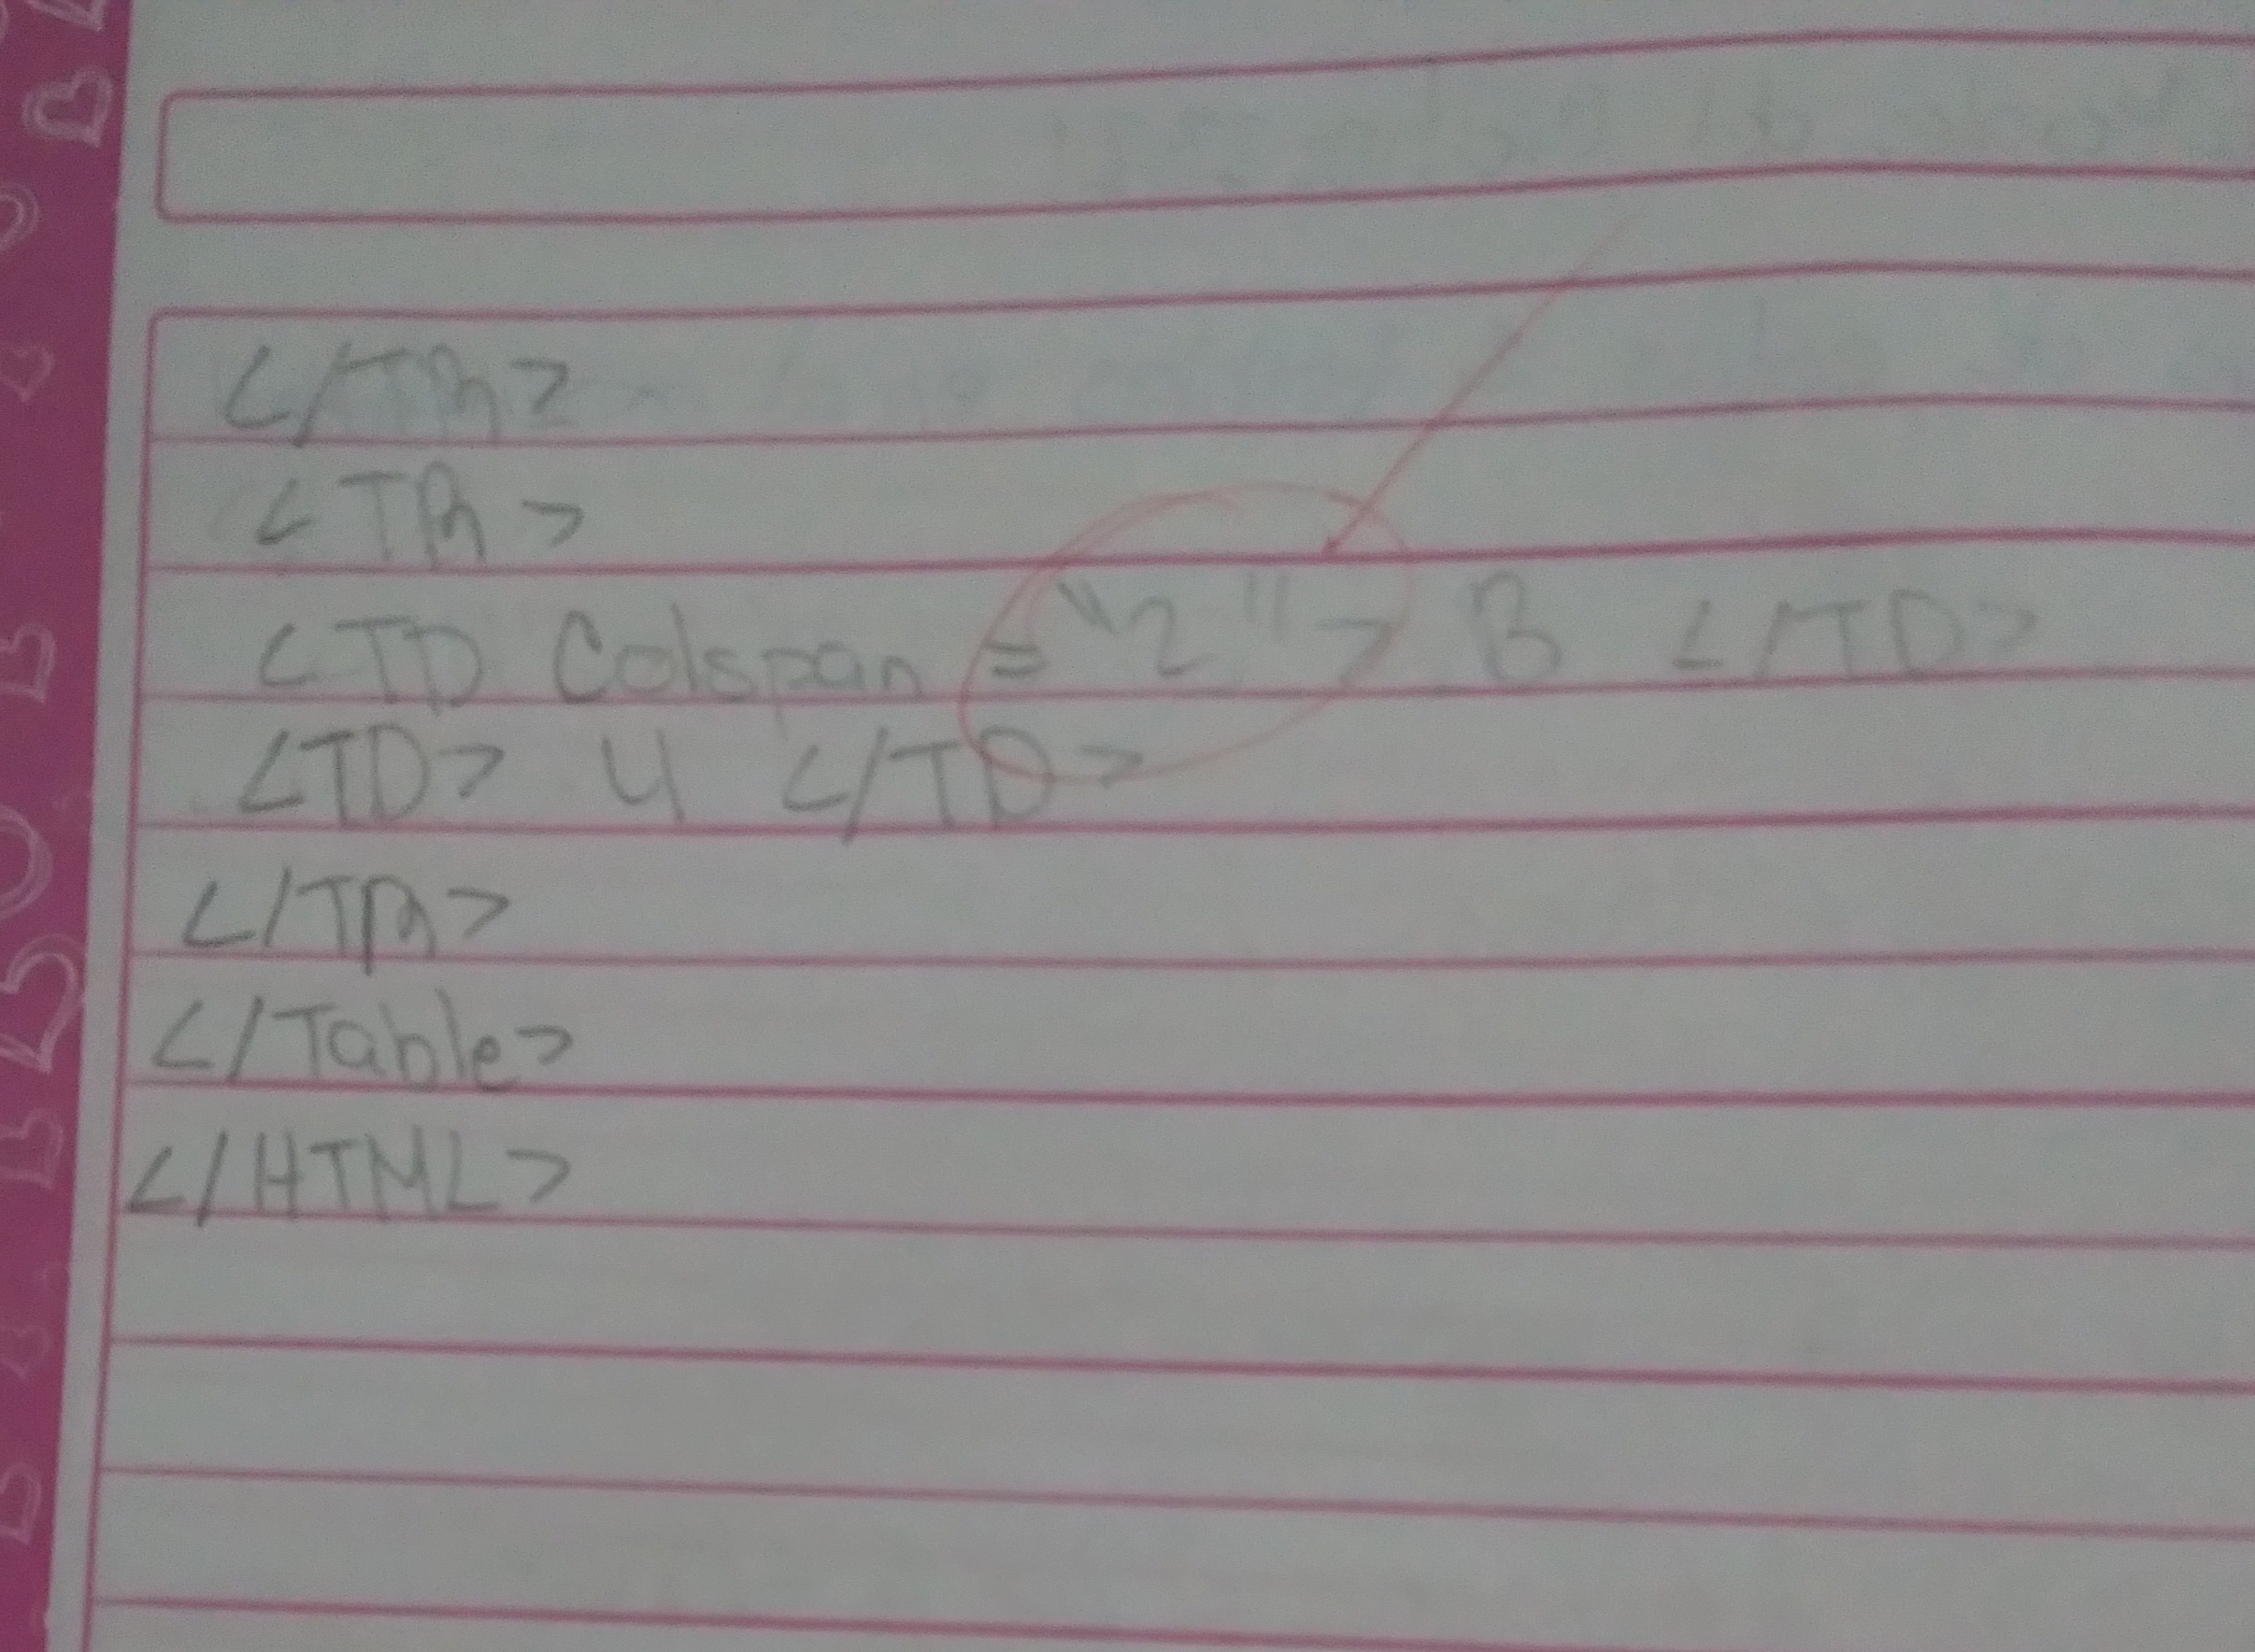 </TR>
<TR>
<TD Colspan = "2" > B </TD>
<TD> 4 </TD>
</TR>
</Table>
</HTML>